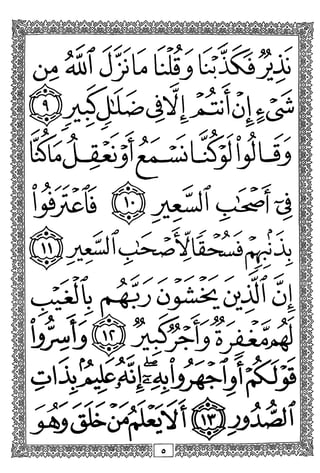 نَذِيرٌ فَكَذَّبْنَا وَقُلْنَا مَا نَزَّلَ ٱللَّهُ مِن
شَىْءٍ إِنْ أَنتُمْ إِلَّا فِى ضَلَٰلٍ كَبِيرٍ ٩
وَقَالُوا۟ لَوْ كُنَّا نَسْمَعُ أَوْ نَعْقِلُ مَا كُنَّا
فِىٓ أَصْحَٰبِ ٱلسَّعِيرِ ١٠ فَٱعْتَرَفُوا۟
بِذَنۢبِهِمْ فَسُحْقًا لِّأَصْحَٰبِ ٱلسَّعِيرِ ١١
إِنَّ ٱلَّذِينَ يَخْشَوْنَ رَبَّهُم بِٱلْغَيْبِ
لَهُم مَّغْفِرَةٌ وَأَجْرٌ كَبِيرٌ ١٢ وَأَسِرُّوا۟
قَوْلَكُمْ أَوِ ٱجْهَرُوا۟ بِهِۦٓ إِنَّهُۥ عَلِيمٌۢ بِذَاتِ
ٱلصُّدُورِ ١٣ أَلَا يَعْلَمُ مَنْ خَلَقَ وَهُوَ
٥